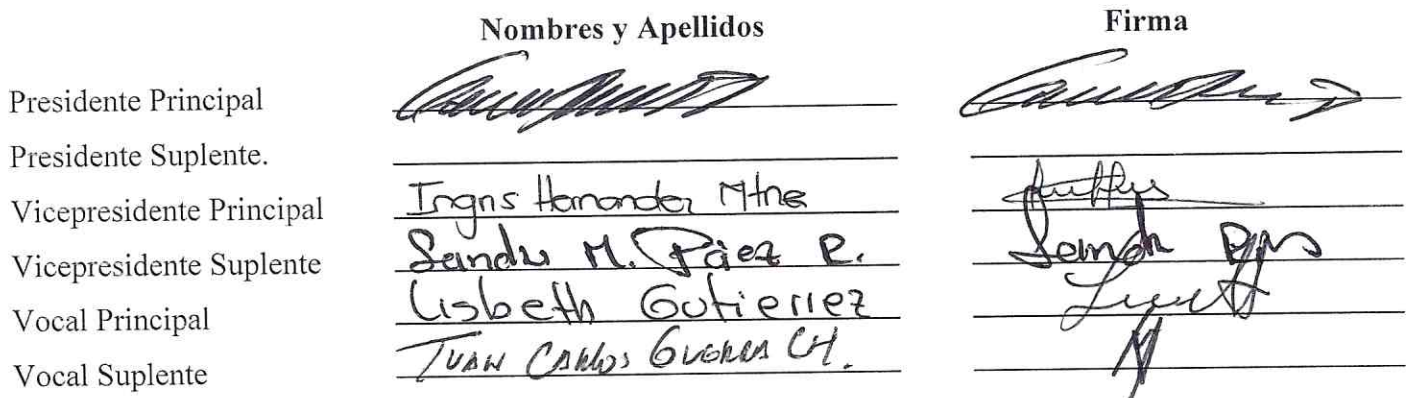 Nombres y Apellidos Firma
Presidente Principal
Presidente Suplente.
Vicepresidente Principal Ingris Hernandez Mtne
Vicepresidente Suplente Sandra M. Páez R.
Vocal Principal Lisbeth Gutierrez
Vocal Suplente JUAN CARLOS GUERRA CH.